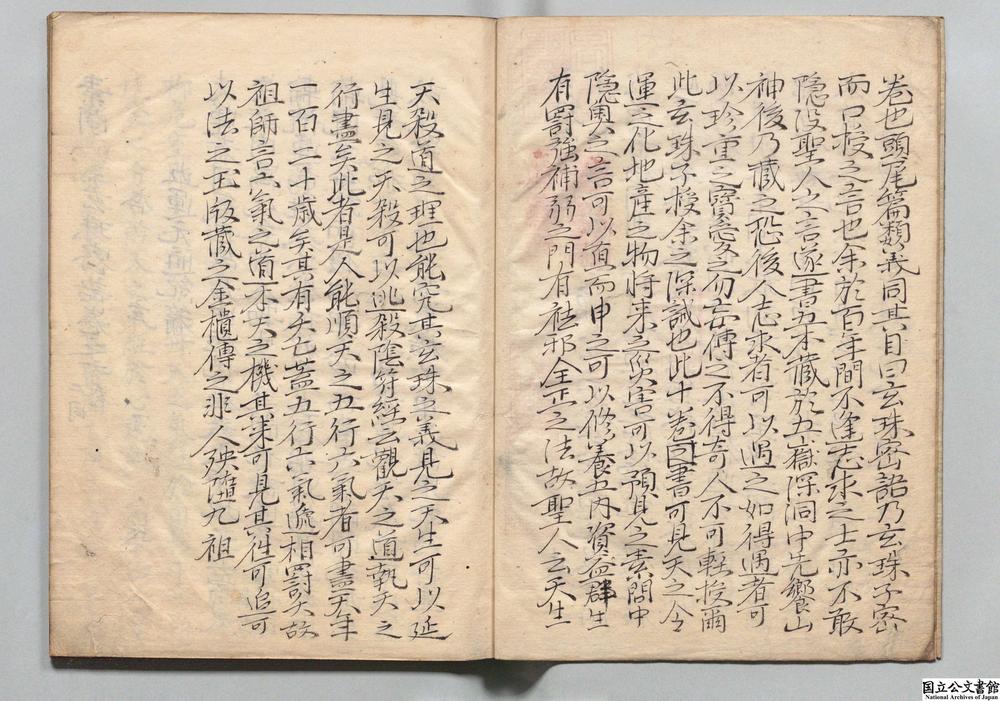 卷也頭尾篇類義同其目曰玄珠密語乃玄珠子密
而口授之言也余於百年間不逢志求之士亦不敢
隱没聖人之言遂書五本藏於五嶽深洞中先饗山
神後乃藏之恐後人志求者可以遇之如得遇者可
以珍重之寶愛之勿妄傳之不得奇人不可輕授爾
此玄珠子授余之深誡也此十卷書可見天之令
運之化地産之物將来之災害可以預見之素問中
隱奥之言可以直而申之可以修養五内資益群生
有罰強補弱之門有祛邪全正之法故聖人云天生
天殺道之理也能究其玄珠之義見之天生可以延
生見之天殺可以逃殺陰符經云觀天之道執天之
行盡矣此者是人能順天之五行六氣者可盡天年
一百二十歲矣其有夭亡蓋五行六氣遞相罰夫故
祖師言六氣之道本天之機其来可見其徃可追可
以法之玉版藏之金櫃傳之非人殃墮九祖
国立公文書館
National Archives of Japan